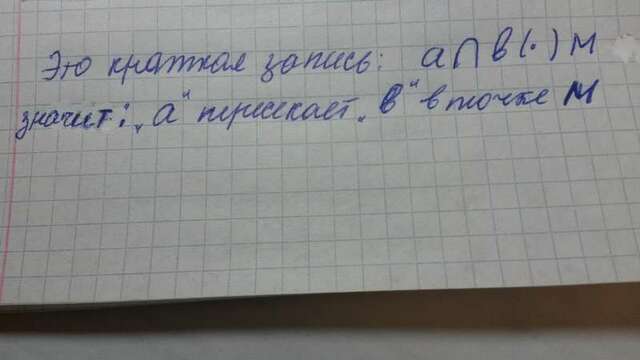 Это краткая запись: a∩в(·)М
значит: „a“ пересекает „в“ в точке М